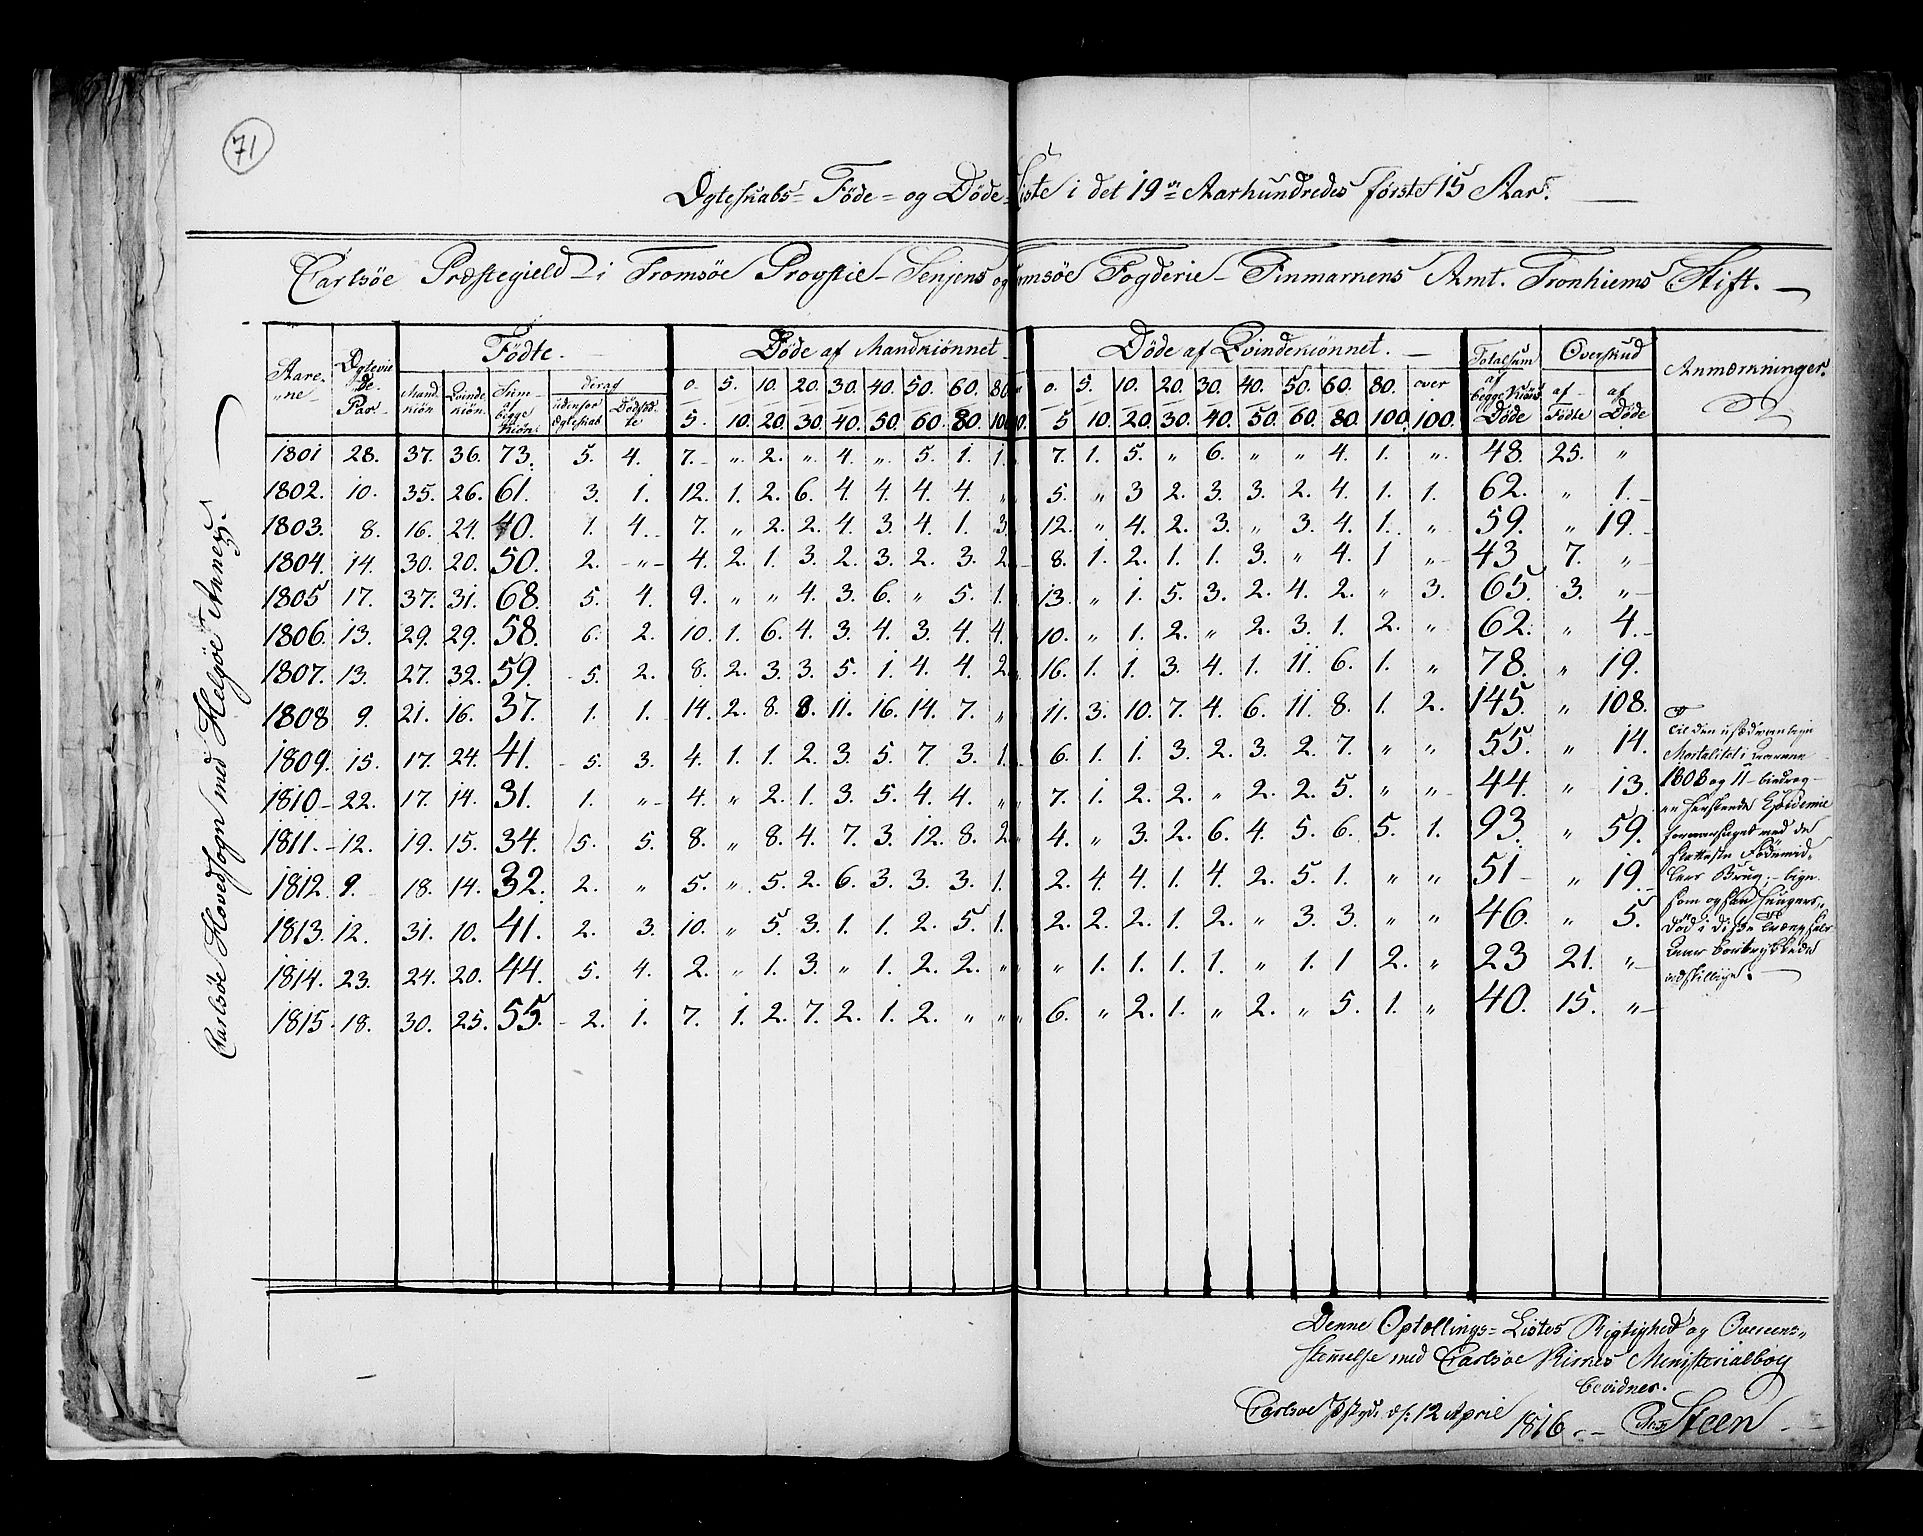 71
Ægteskabs- Föde- og Döde-Liste i det 19de Aarhundredes første 15 Aar.
Carlsöe Præstegield i Tromsöe Provstie - Senjens og Tromsöe Fogderie - Finmarkens Amt. Tronhiems Stift.
Carlsöe Hovedsogn med Helgöe Annex.
Aarene | Ægtevie de Par | Födte. | Döde af Mandkiönnet | Döde af Qvindekiönnet. | Totalsum af begge Kiöns Döde | Overskud | Anmærkninger.
Mand kiön | Qvinde kiön | Sum af begge Kiön. | deraf | udenfor Ægteskab | Dödföd te | af Födte | af Döde
0. 5. 10. 20. 30. 40. 50. 60. 80. | 0. 5. 10. 20. 30. 40. 50. 60. 80. over
5. 10. 20. 30. 40. 50. 60. 80. 100. | 5 10. 20. 30. 40. 50. 60. 80. 100. 100.
1801 28. 37. 36. 73. 5. 4. 7. „ 2. „ 4. „ 5. 1. 1. 7. 1. 5. „ 6. „ „ 4. 1. „ 48. 25. „
1802. 10. 35. 26. 61. 3. 1. 12. 1. 2. 6. 4. 4. 4. 4. „ 5. „ 3 2. 3. 3. 2. 4. 1. 1. 62. „ 1.
1803. 8. 16. 24. 40. 1. 4. 7. „ 2. 2. 4. 3. 4. 1. 3 12. „ 4. 2. 3. „ 3. 4. 1. „ 59. „ 19.
1804. 14. 30. 20. 50. 2. „ 4. 2. 1. 3. 2. 3. 2. 3. 2. 8. 1. 2. 1. 1. 3. „ 4. 1 „ 43 7. „
1805 17. 37. 31. 68. 5. 4. 9. „ „ 4. 3. 6. „ 5. 1. 13. „ 1. 5. 3. 2. 4. 2. „ 3. 65. 3. „
1806. 13. 29. 29. 58. 6. 2. 10. 1. 6. 4. 3. 4. 3. 4. 4. 10. „ 1. 2. „ 2. 3. 1. 2. „ 62. „ 4.
1807. 13. 27. 32. 59. 5. 2. 8. 2. 3. 3. 5. 1. 4. 4. 2. 16. 1. 1. 3. 4. 1. 11. 6. 1. „ 78. „ 19.
1808 9. 21. 16. 37. 1. 1. 14. 2. 8. 8. 11. 16. 14. 7. „ 11. 3. 10. 7. 4. 6. 11. 8. 1. 2. 145. „ 108.
1809. 15. 17. 24. 41. 5. 3. 4. 1. 1. 2. 3. 5. 7. 3. 1. 6. 1. 1. 3. 2. 3. 2. 7. „ „ 55. „ 14.
1810 22. 17. 14. 31. 1. „ 4. „ 2. 1. 3. 5. 4. 4. „ 7. 1. 2. 2. „ 2. 2. 5. „ „ 44. „ 13.
1811. 12. 19. 15. 34. 5. 5. 8. „ 8. 4. 7. 3. 12. 8. 2 4. „ 3. 2. 6. 4. 5. 6. 5. 1. 93. „ 59.
1812. 9. 18. 14. 32. 2. „ 5. „ 5. 2. 6. 3. 3. 3. 1. 2. 4. 4. 1. 4. 2. 5. 1. „ „ 51 „ 19
1813. 12. 31. 10. 41. 2. 3. 10. „ 5. 3. 1. 1. 2. 5. 1. 2. 2. 2. 1. 2. „ 3. 3. „ „ 46. „ 5.
1814. 23. 24. 20. 44. 5. 4. 2. „ 1. 3. „ 1. 2. 2. „ „ 1. 1. 1. 1. „ 1. 1 2. „ 23 21. „
1815. 18. 30. 25. 55. 2. 1. 7. 1. 2. 7. 2. 1. 2. „ „ 6. „ 2. 1. „ 2. „ 5. 1. „ 40. 15. „
Til den usædvanlige
Mortalitet i
1808 og 11 bidrog
herskende Epidemie
foraarsaget med de
sletteste Födemid-
lers Brug, - lige
som ogsaa Hungers-
död i disse
udskillige.
Denne Optællings-Listes Rigtighed og Overeens-
stemmelse med Carlsöe Kirkes Ministerialbog
bevidner.
Carlsöe Pstgd. d: 12 April 1816. Steen